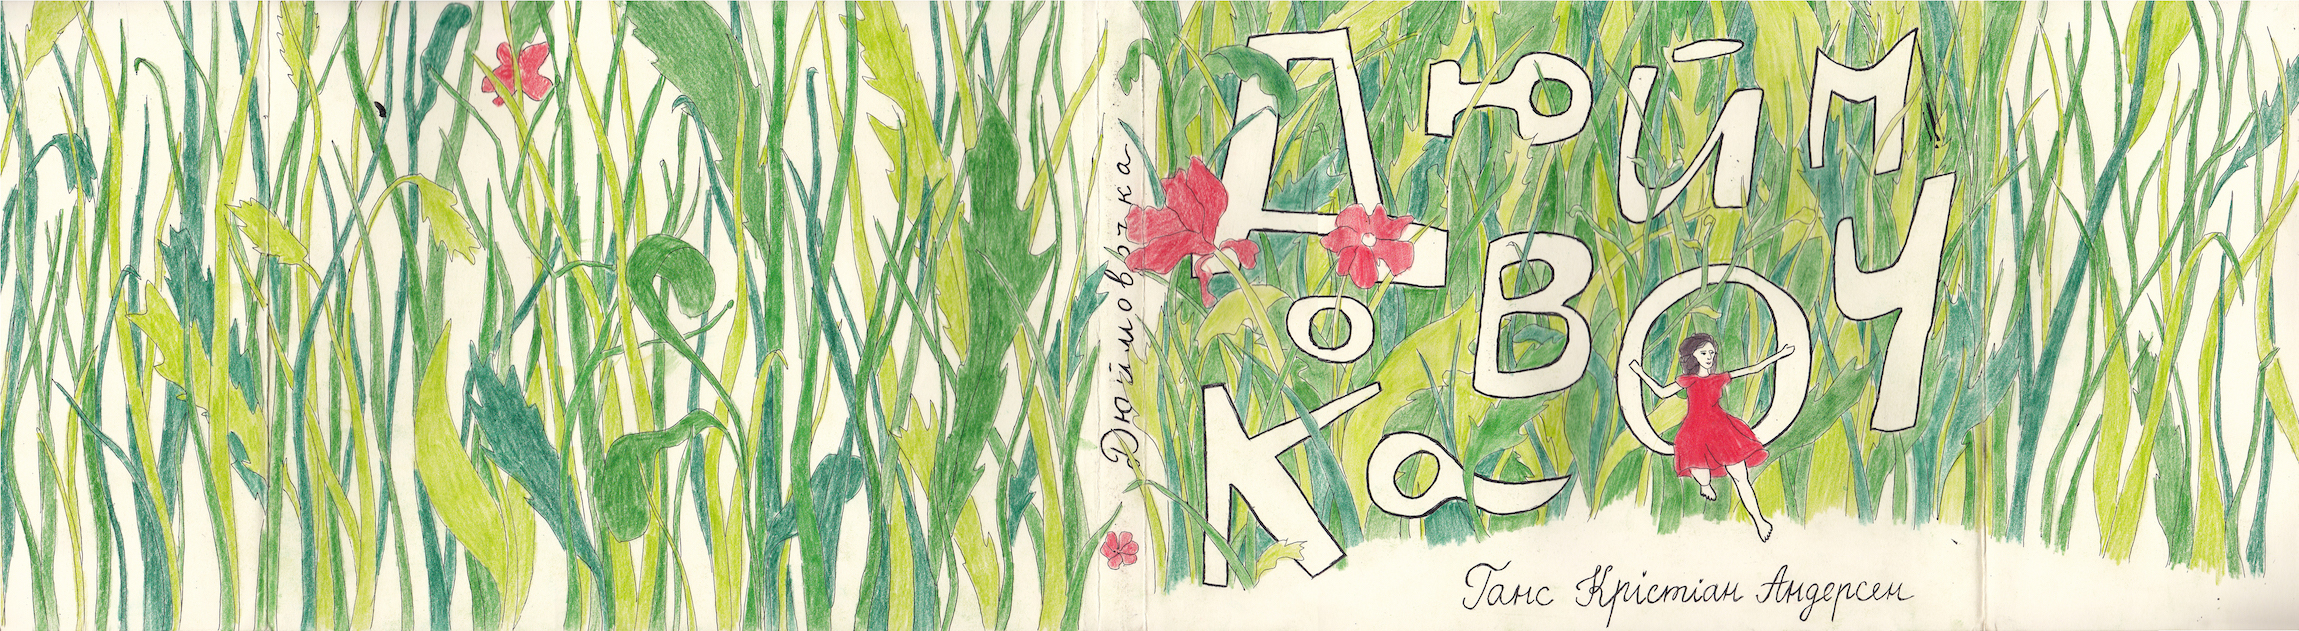 Дюймовочка
Дюйм
овоч
ка
Ганс Крістіан Андерсен